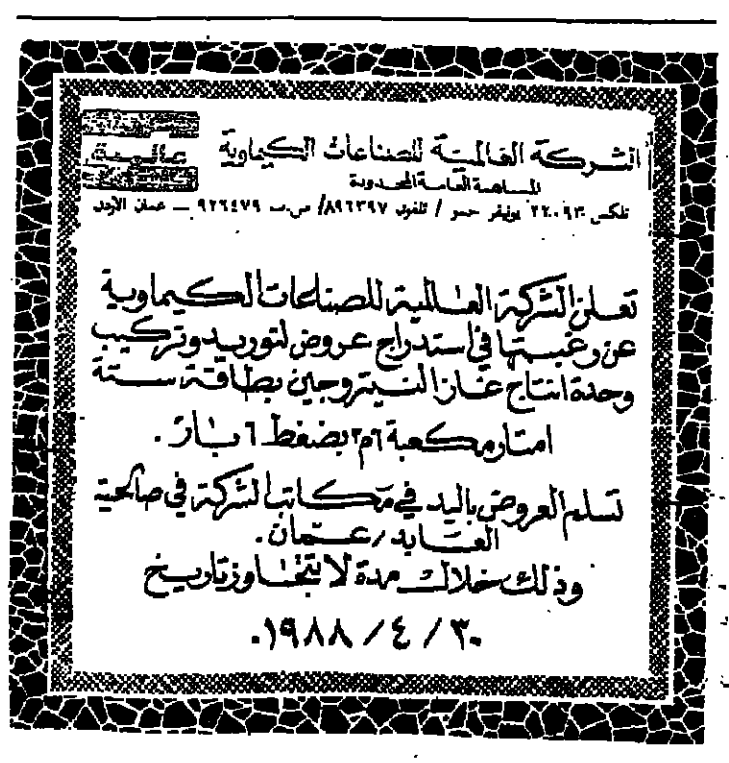 الشركة العالمية للصناعات الكيماوية
عالمية
المساهمة العامة المحدودة
تلكس ٢٢٠٩٣ يونيفر جو / تلفون ٨٩٦٣٩٧/ ص.ب ٩٢٦٤٧٩ — عمان الأردن
تعلن الشركة العالمية للصناعات الكيماوية
عن رغبتها في استدراج عروض لتوريد وتركيب
وحدة انتاج غاز النيتروجين بطاقة ستة
امتار مكعبة ٦م٣ بضغط ٦ بار .
تسلم العروض باليد في مكاتب الشركة في صالحية
العابد / عمان .
وذلك خلال مدة لا تتجاوز تاريخ
٣٠ / ٤ / ١٩٨٨ .